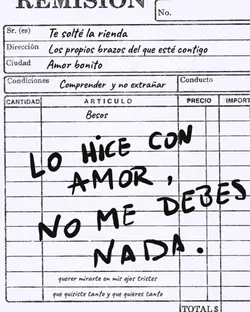 REMISIÓN
No.
Sr. (es) Te solté la rienda
Dirección Los propios brazos del que esté contigo
Ciudad Amor bonito
Condiciones Comprender y no extrañar Conducto
CANTIDAD ARTICULO PRECIO IMPORT
Besos
LO HICE CON
AMOR,
NO ME DEBES
NADA.
querer mirarte en mis ojos tristes
que quisiste tanto y que quieres tanto
TOTAL $